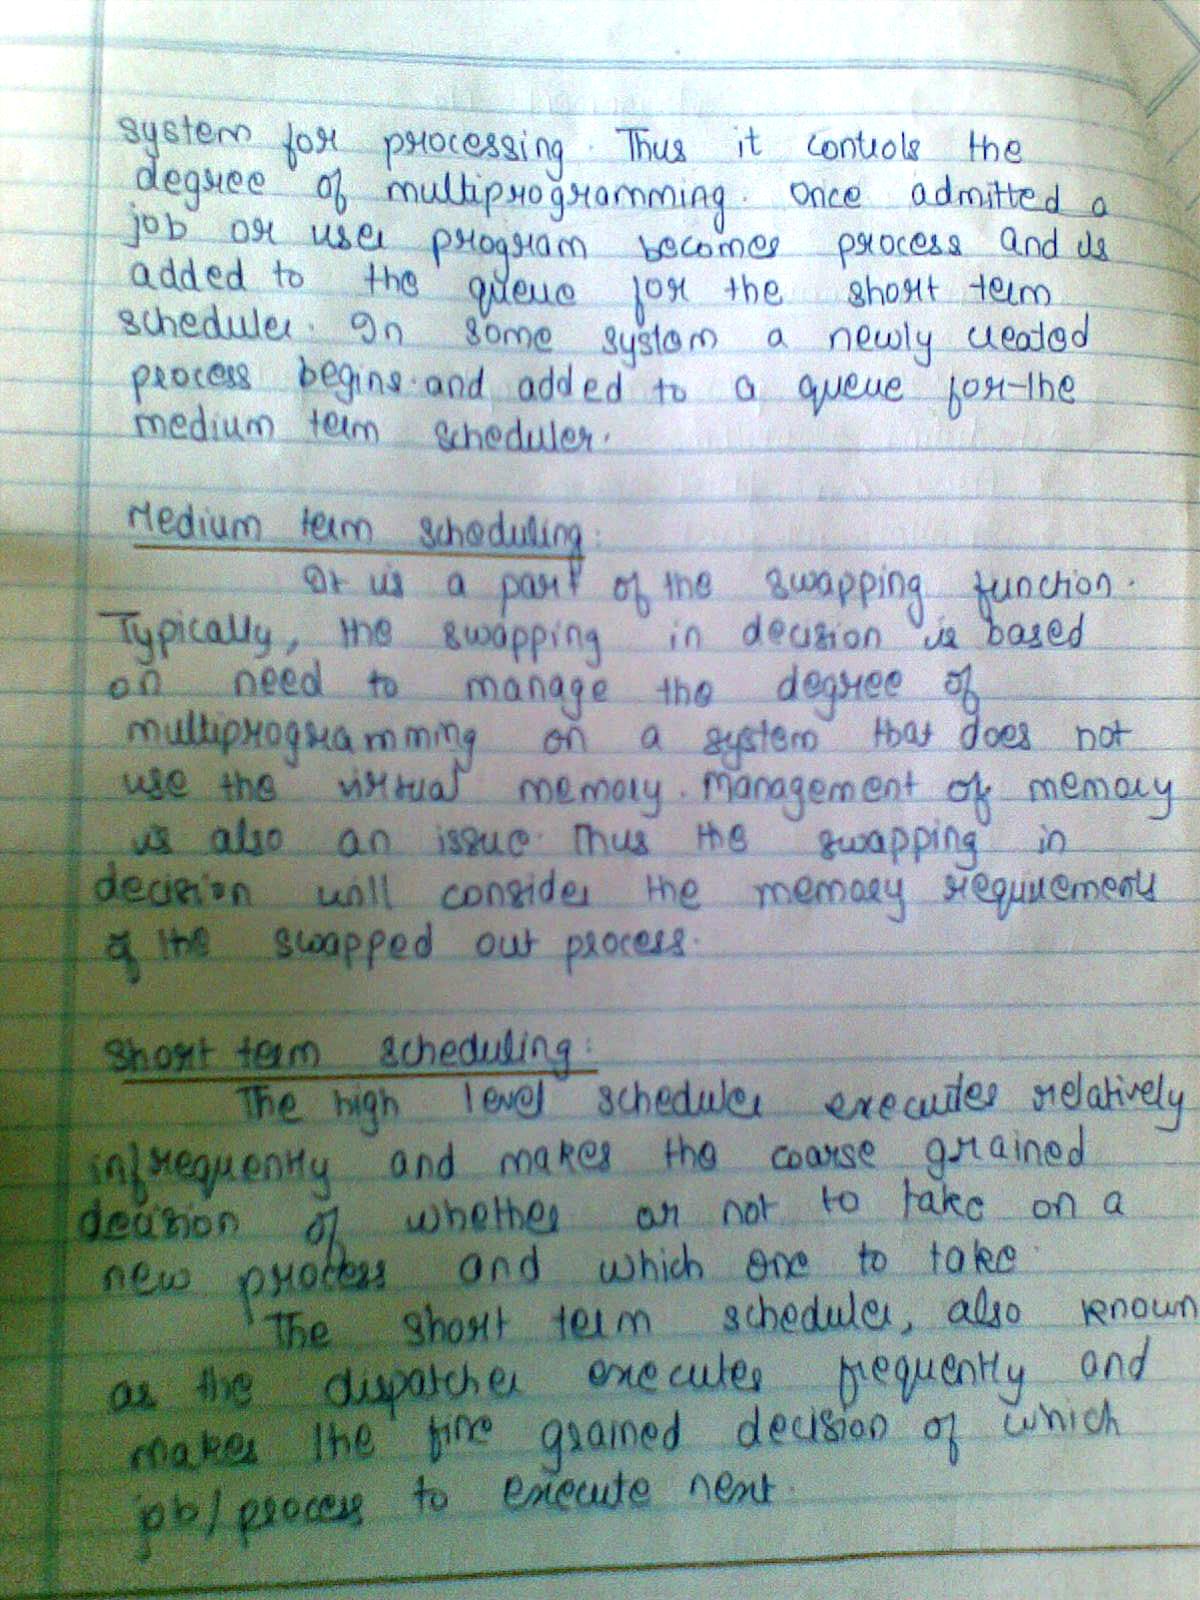 system for processing. Thus it controls the
degree of multiprogramming. Once admitted a
job or user program becomes process and is
added to the queue for the short term
scheduler. In some system a newly created
process begins and added to a queue for the
medium term scheduler.
Medium term scheduling:
It is a part of the swapping function.
Typically, the swapping in decision is based
on need to manage the degree of
multiprogramming on a system that does not
use the virtual memory. Management of memory
is also an issue. Thus the swapping in
decision will consider the memory requirements
of the swapped out process.
Short term scheduling:
The high level scheduler executes relatively
infrequently and makes the coarse grained
decision of whether or not to take on a
new process and which one to take.
The short term scheduler, also known
as the dispatcher executes frequently and
makes the fine grained decision of which
job/process to execute next.